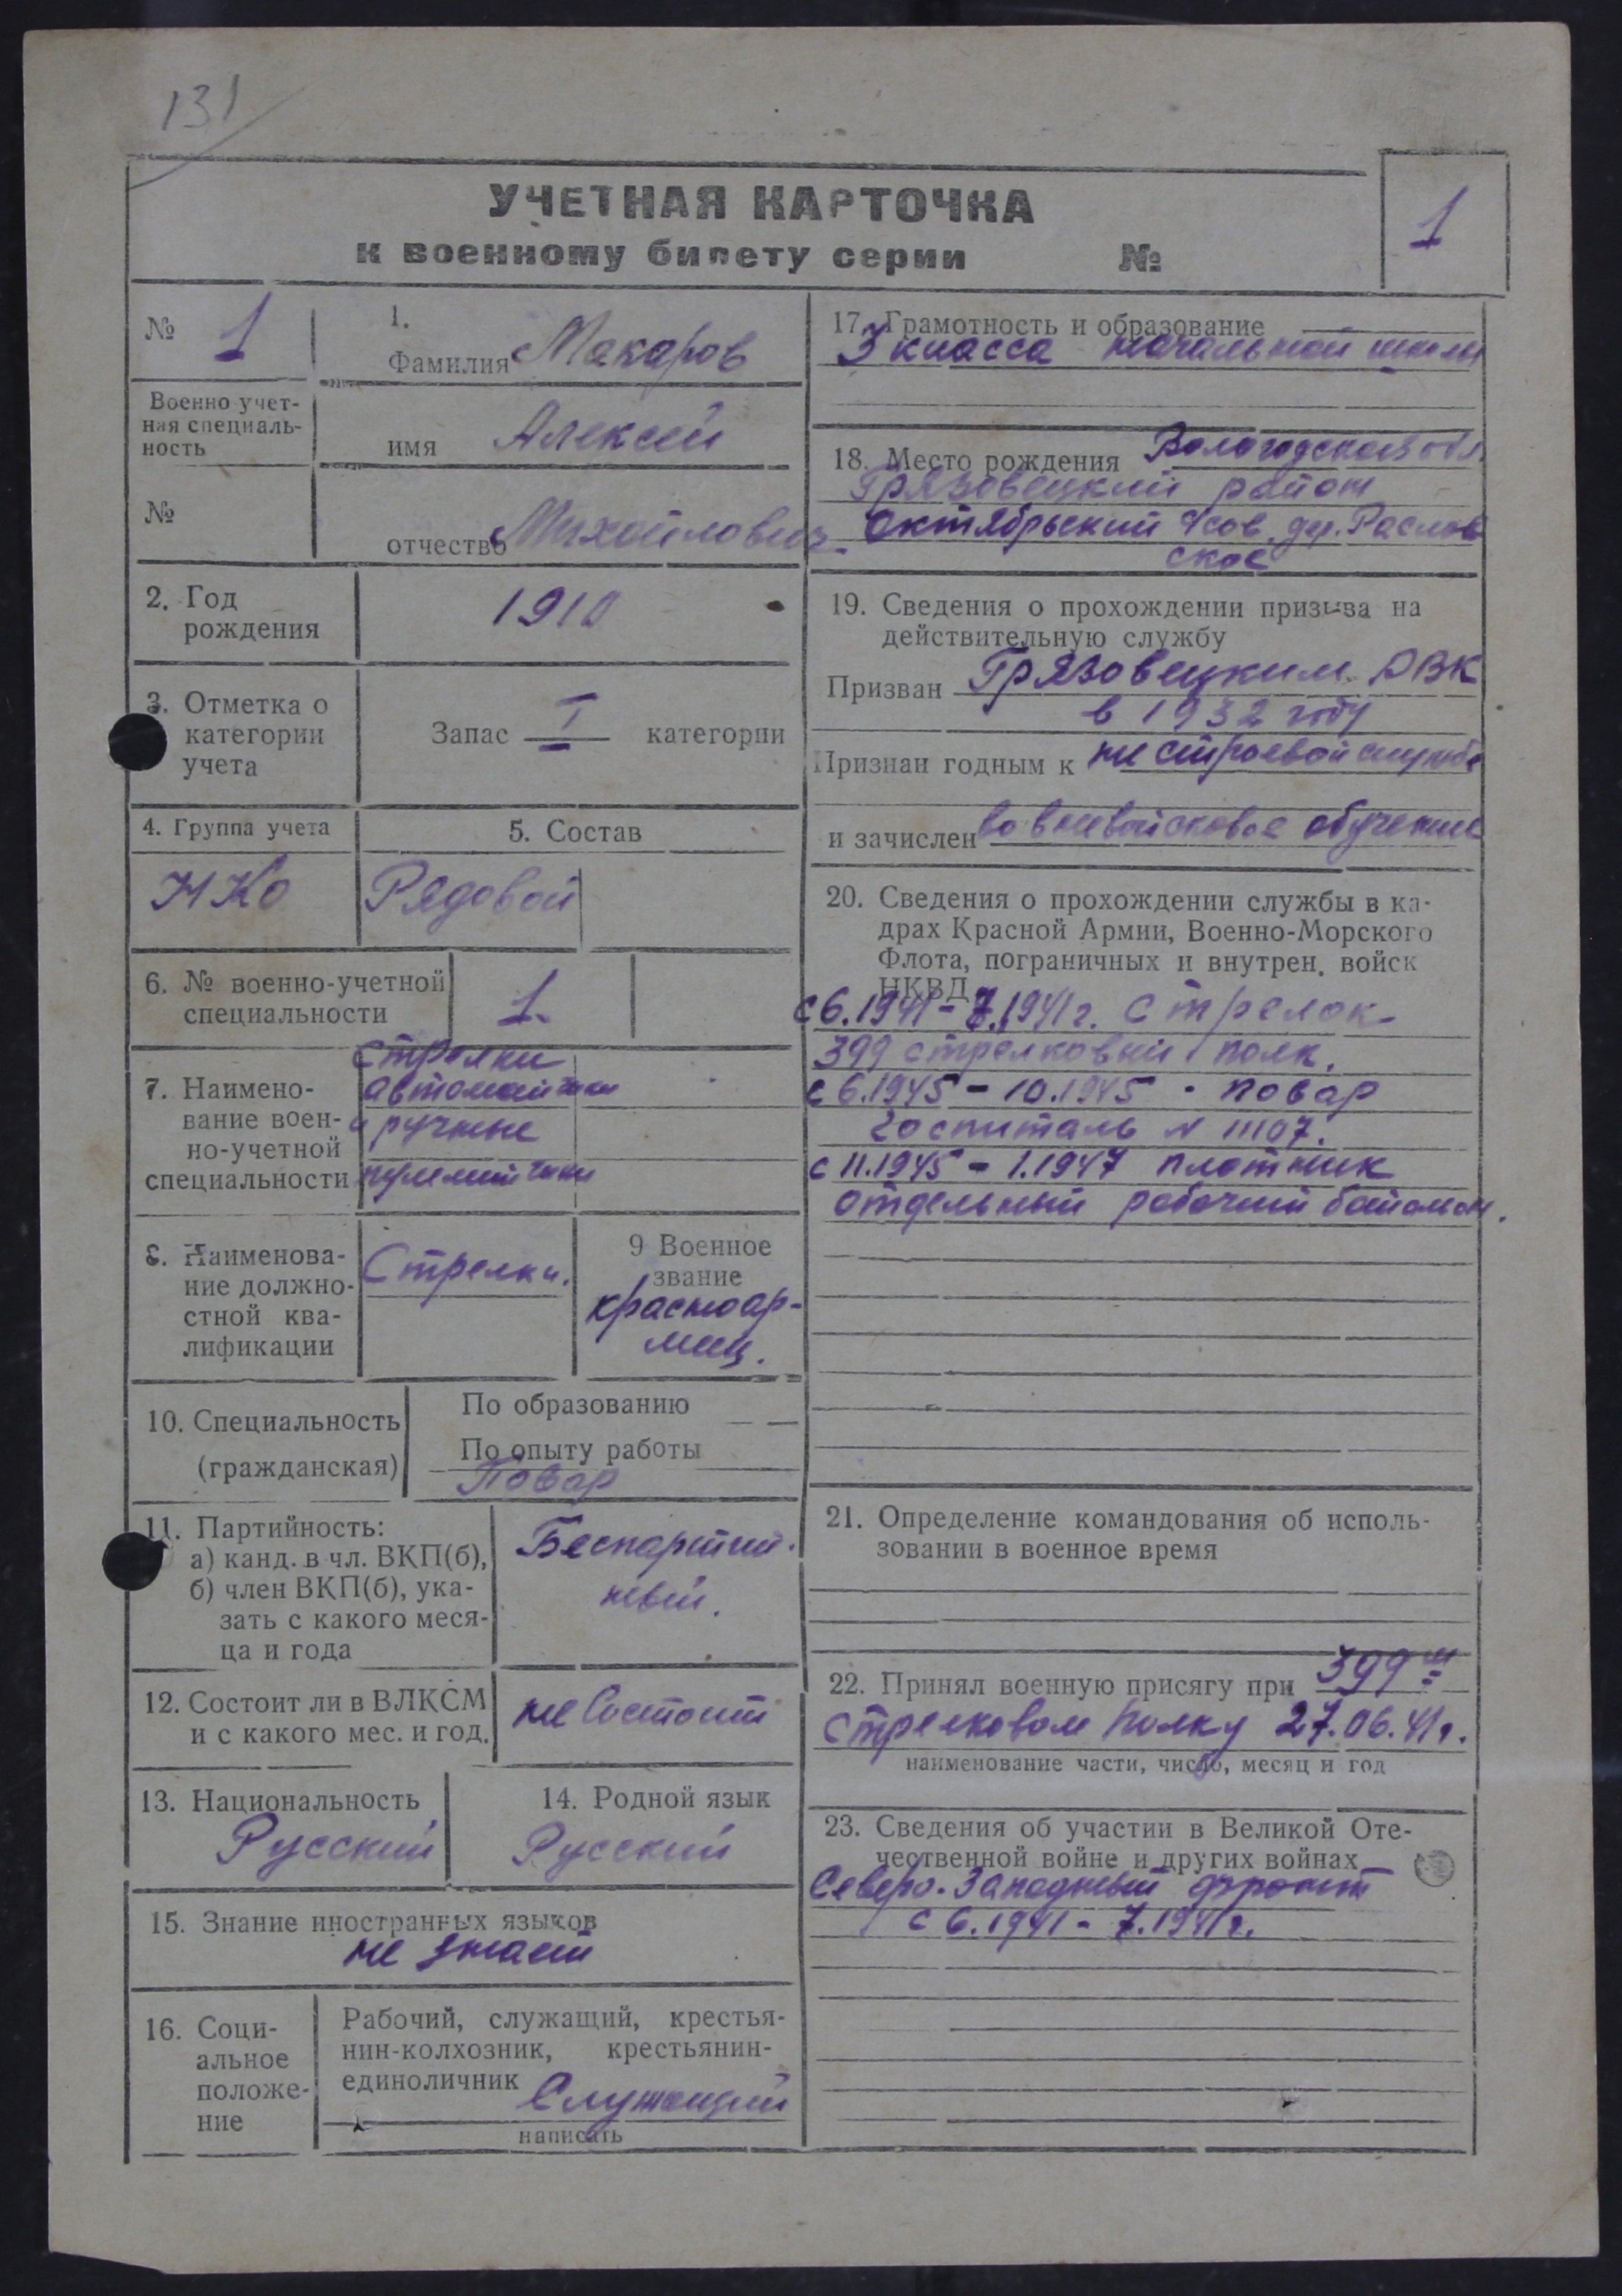 131
УЧЕТНАЯ КАРТОЧКА
к военному билету серии №
1
№ 1
1.
Фамилия Макаров
Военно-учет-
ная специаль-
ность
имя Алексей
№
отчество Михайлович
2. Год
рождения
1910
3. Отметка о
категории
учета
Запас I категории
4. Группа учета
НКО
5. Состав
Рядовой
6. № военно-учетной
специальности
1.
7. Наимено-
вание воен-
но-учетной
специальности
Стрелки
автоматчики
и ручные
пулеметчики
8. Наименова-
ние должно-
стной ква-
лификации
Стрелки.
9 Военное
звание
красноар-
меец.
10. Специальность
(гражданская)
По образованию — —
По опыту работы
Повар
11. Партийность:
а) канд. в чл. ВКП(б),
б) член ВКП(б), ука-
зать с какого меся-
ца и года
Беспартий-
ный.
12. Состоит ли в ВЛКСМ
и с какого мес. и год.
не состоит
13. Национальность
Русский
14. Родной язык
Русский
15. Знание иностранных языков
не знает
16. Соци-
альное
положе-
ние
Рабочий, служащий, крестья-
нин-колхозник, крестьянин-
единоличник
Служащий
написать
17. Грамотность и образование
3 класса начальной школы
18. Место рождения Вологодская обл
Грязовецкий район
Октябрьский с/сов. дер. Раслов
ское
19. Сведения о прохождении призыва на
действительную службу
Призван Грязовецким РВК
в 1932 году
Признан годным к не строевой службе
и зачислен во вневойсковое обучение
20. Сведения о прохождении службы в ка-
драх Красной Армии, Военно-Морского
Флота, пограничных и внутрен. войск
НКВД
с 6.1941 - 7.1941 г. стрелок-
399 стрелковый полк.
с 6.1945 - 10.1945 - повар
госпиталь N 1107.
с 11.1945 - 1.1947 плотник
отдельный рабочий батальон.
21. Определение командования об исполь-
зовании в военное время
22. Принял военную присягу при 399 м
стрелковом полку 27.06.41 г.
наименование части, число, месяц и год
23. Сведения об участии в Великой Оте-
чественной войне и других войнах
Северо-Западный фронт
с 6.1941 - 7.1941 г.